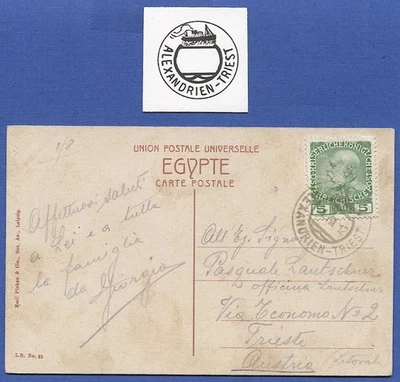 ALEXANDRIEN-TRIEST
1/8
UNION POSTALE UNIVERSELLE
EGYPTE
CARTE POSTALE
5 5
ALEXANDRIEN-TRIEST
Affettuosi saluti
a Lei e a tutta
la famiglia
da Giorgio
All Eg. Signor
Pasquale Lautschner
Officina Lautschner
Via Economo No 2
Trieste
Austria (Litorale
Emil Pinkau & Co., Soc. An., Leipzig.
L.R. No. 21